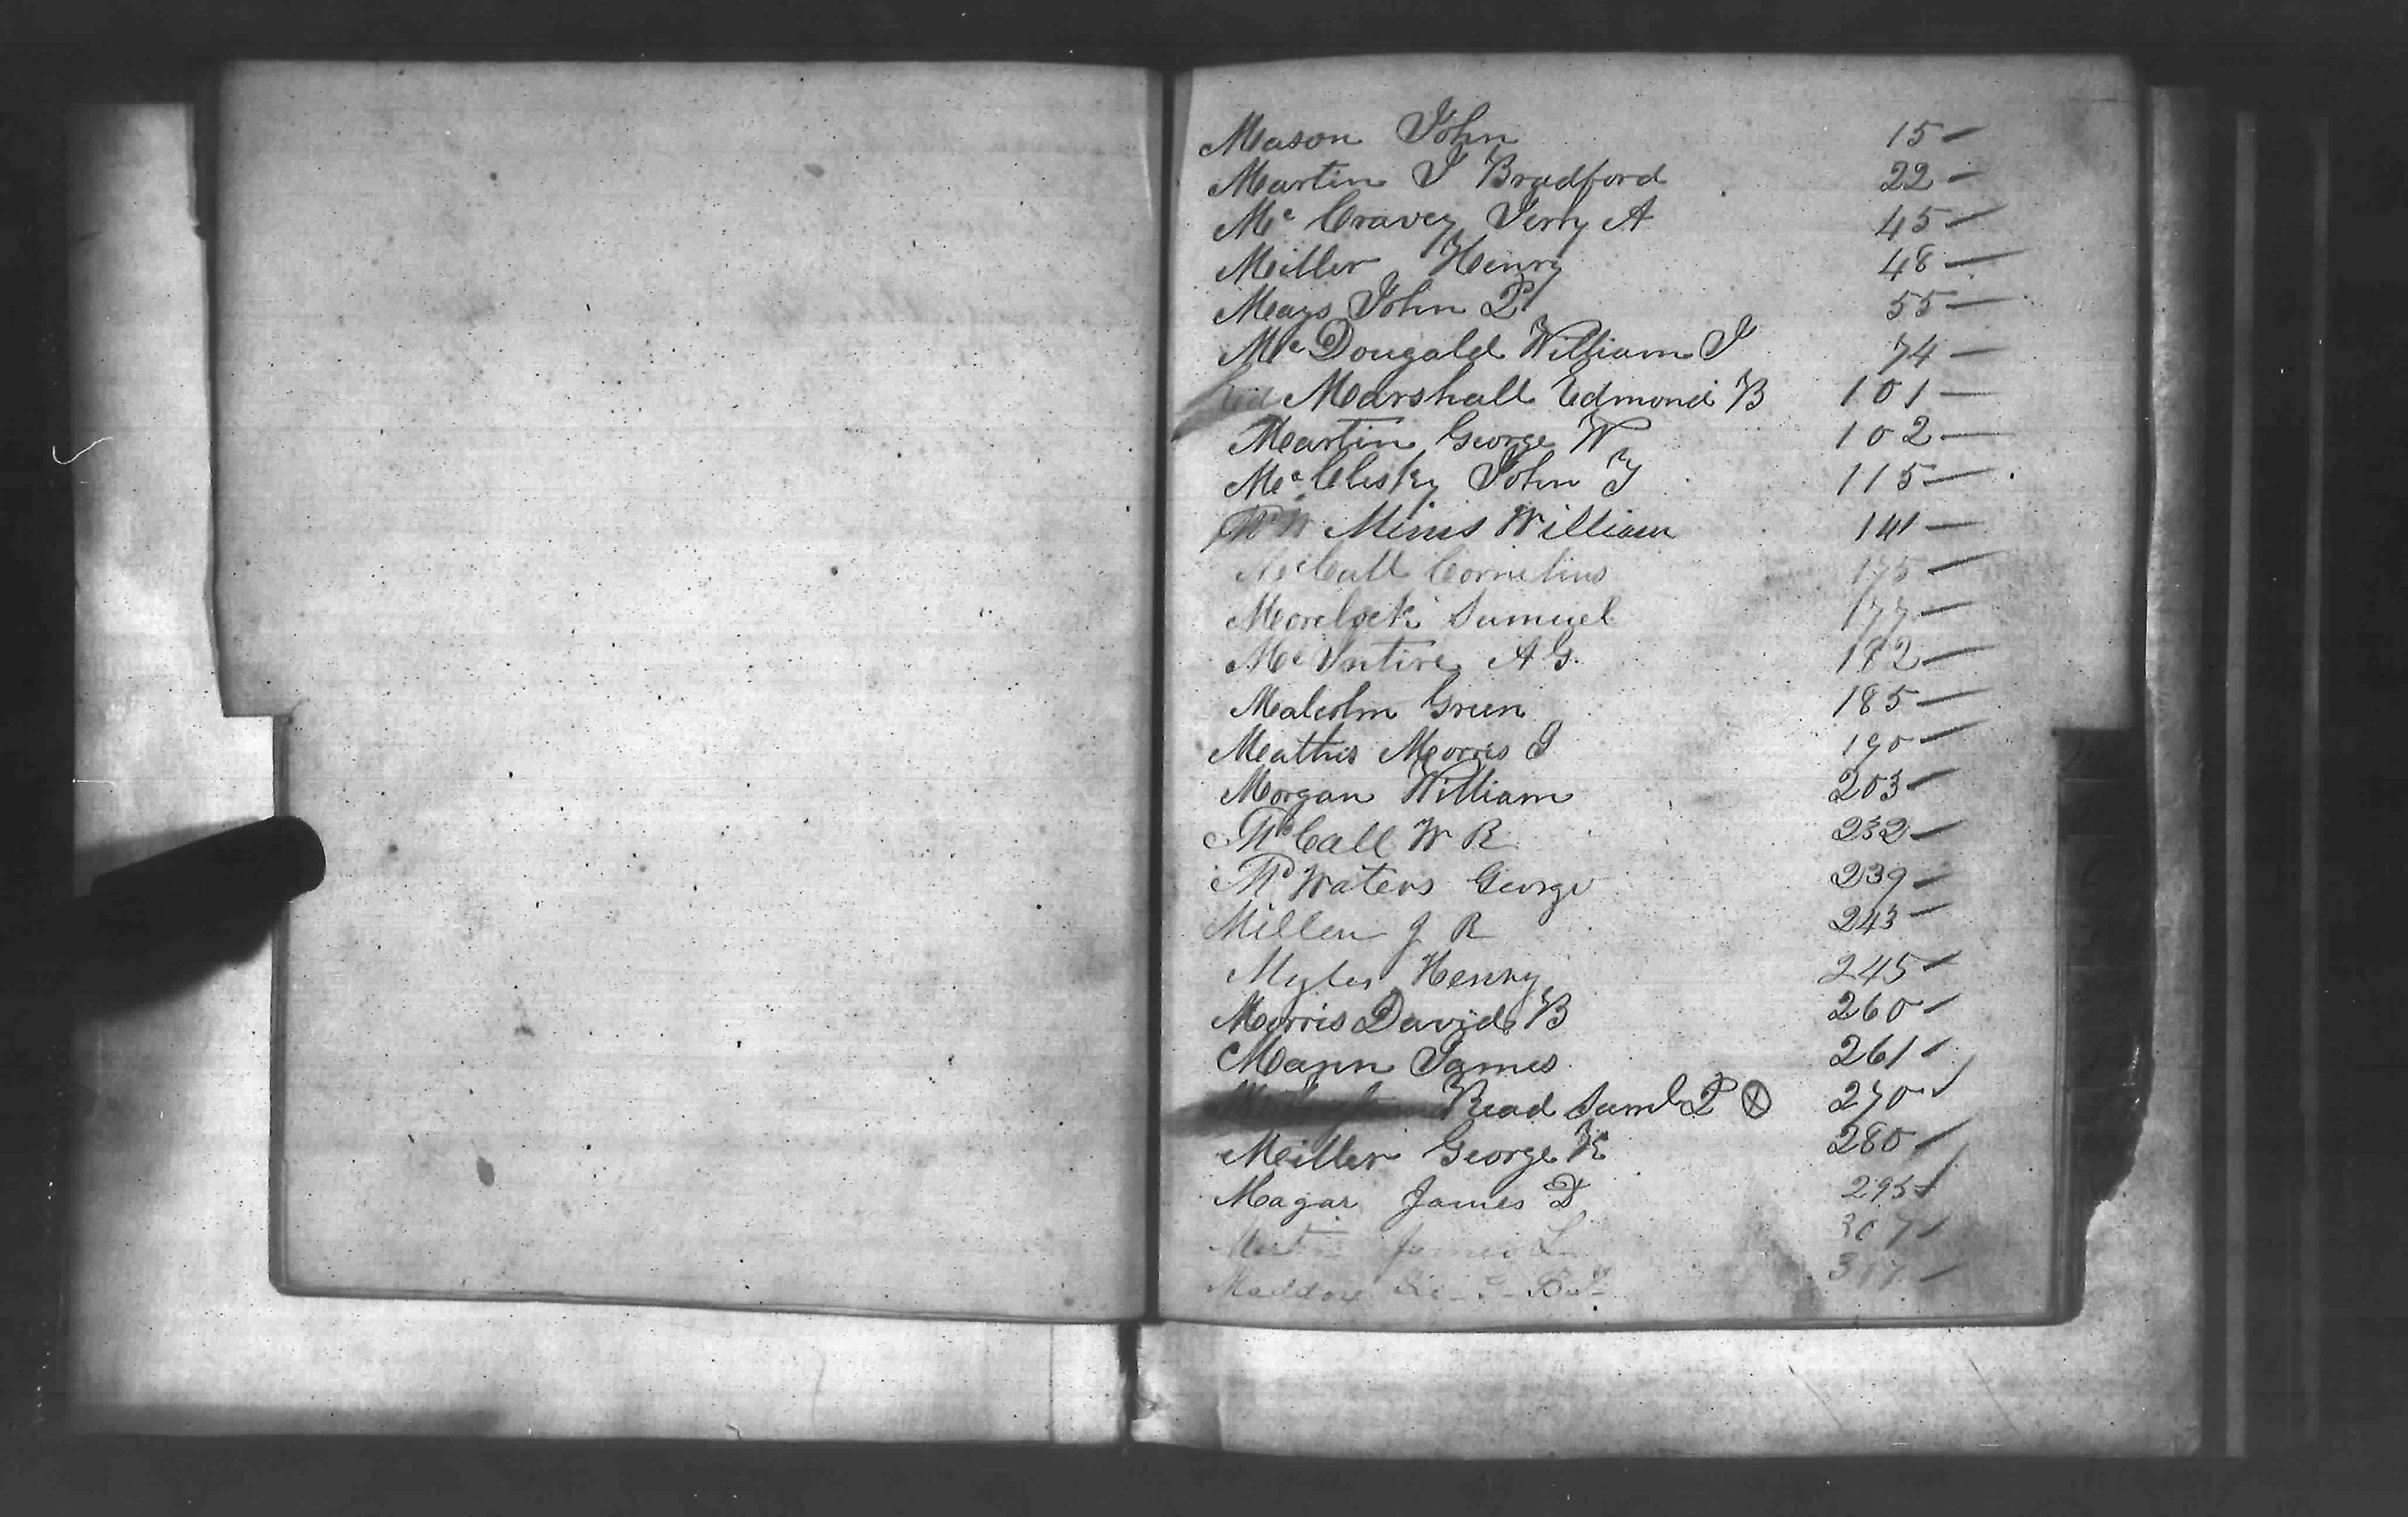 Mason John 15 —
Martin J Bradford 22 —
Mc Cravey Jerry A 45 —
Miller Henry 48 —
Mays John P 55 —
Mc Dougald William J 74 —
Marshall Edmond B 101 —
Martin George W 102 —
Mc Clesky John Y 115 —
Mims William 141 —
McCall Cornelius 175 —
Morelock Samuel 177 —
Mc Intire A G. 182 —
Malcolm Green 185 —
Mathis Morris J 190 —
Morgan William 203 —
Mc Call W R 232 —
Mc Waters George 239 —
Millen J R 243 —
Myles Henry 245 —
Morris David B 260 —
Mann James 261 —
Read Saml P ⊗ 270 —
Miller George K 280 —
Magar James D 295 —
James L 307 —
Maddox 317 —